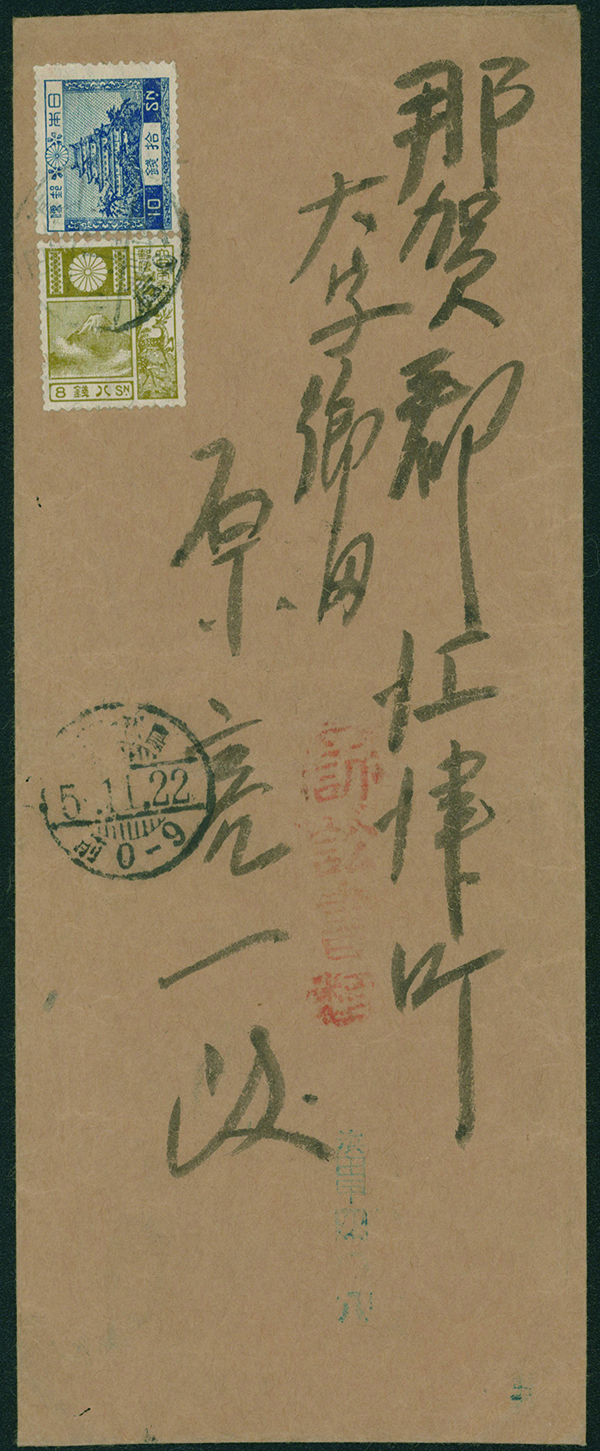 那賀郡江津町
大字郷田
原亮一殿
日本郵便
拾銭
10 SN
8 銭八 SN
5.11.22
0-9